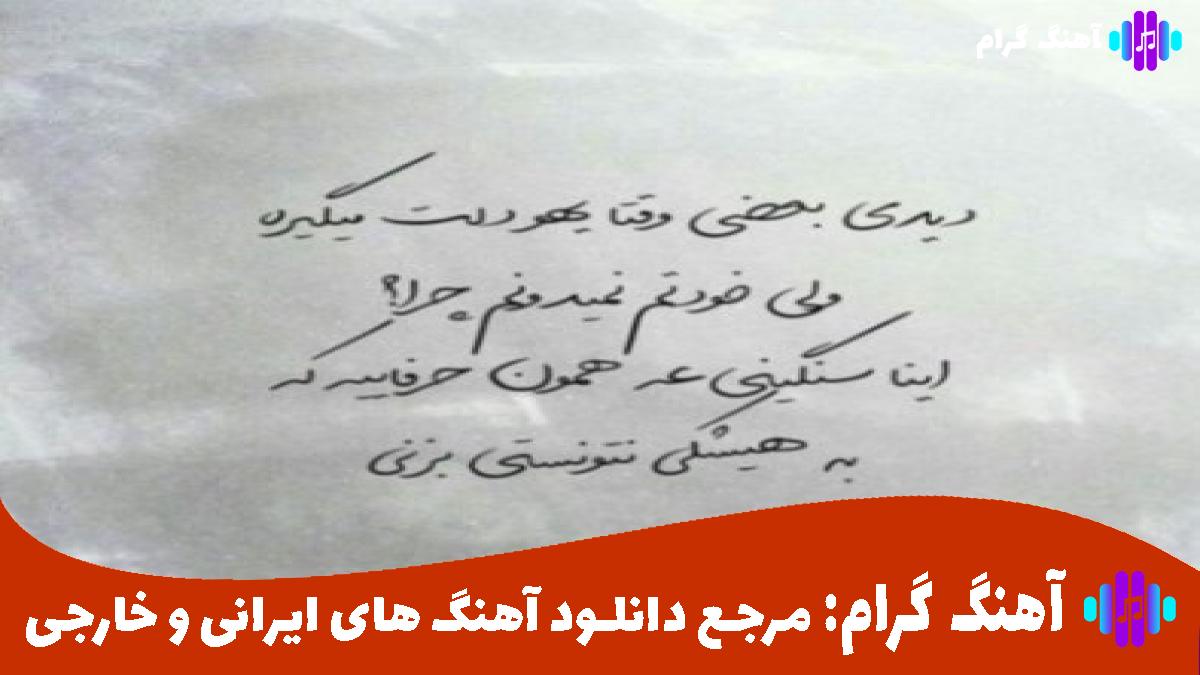 آهنگ گرام
دیدی بعضی وقتا یهو دلت میگیره
ولی خودتم نمیدونم چرا؟
اینا سنگینی عه همون حرفاییه که
به هیشکی نتونستی بزنی
آهنگ گرام: مرجع دانلود آهنگ های ایرانی و خارجی